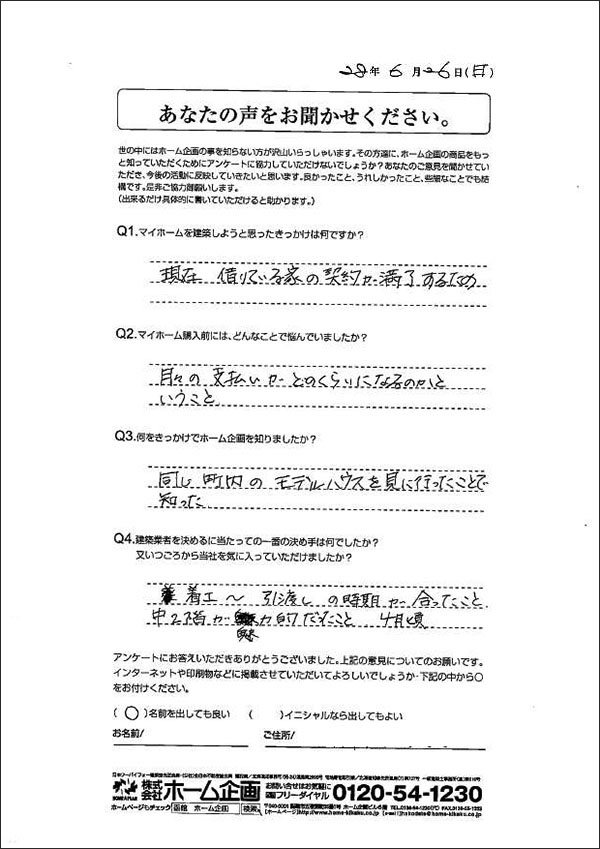 28年 6月26日(日)
あなたの声をお聞かせください。
世の中にはホーム企画の事を知らない方が沢山いらっしゃいます。その方達に、ホーム企画の商品をもっ
と知っていただくためにアンケートに協力していただけないでしょうか?あなたのご意見を聞かせてい
ただき、今後の活動に反映していきたいと思います。良かったこと、うれしかったこと、些細なことでも結
構です。是非ご協力御願いします。
(出来るだけ具体的に書いていただけると助かります。)
Q1.マイホームを建築しようと思ったきっかけは何ですか?
現在 借りている家の契約が満了するため
Q2.マイホーム購入前には、どんなことで悩んでいましたか?
月々の支払いがどのくらいになるのかと
いうこと
Q3.何をきっかけでホーム企画を知りましたか?
同じ町内のモデルハウスを見に行ったことで
知った
Q4.建築業者を決めるに当たっての一番の決め手は何でしたか?
又いつごろから当社を気に入っていただけましたか?
着工〜引渡しの時期が合ったこと
中2階が魅力的だったこと 4月頃
アンケートにお答えいただきありがとうございました。上記の意見についてのお願いです。
インターネットや印刷物などに掲載させていただいてよろしいでしょうか-下記の中から○
をお付けください。
(○)名前を出しても良い ( )イニシャルなら出してもよい
お名前/ ご住所/
株式会社ホーム企画 お問い合せはお気軽に フリーダイヤル 0120-54-1230
ホームページもチェック 函館 ホーム企画 検索